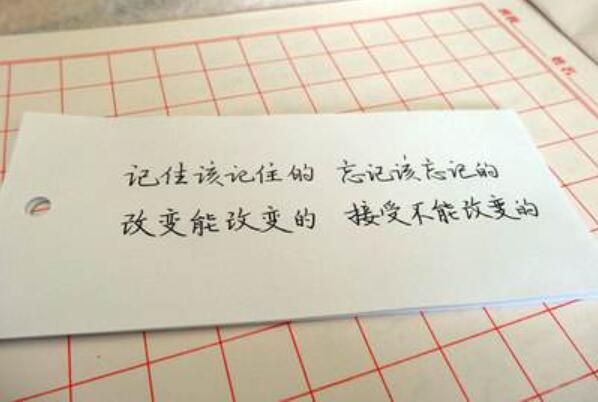 记住该记住的 忘记该忘记的
改变能改变的 接受不能改变的